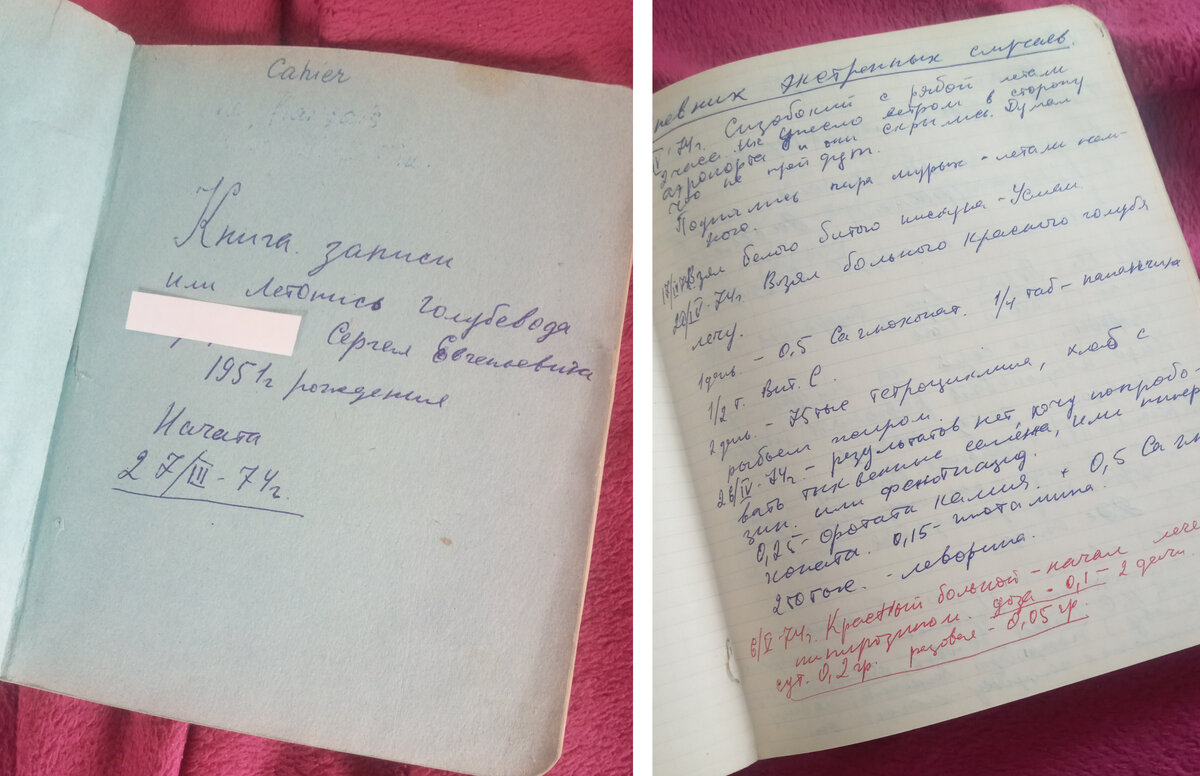 Cahier
Français
Книга записи
или летопись голубевода
Сергея Евгеньевича
1951г рождения
Начата
27/III-74г.
невник экстренных случаев.
IV-74г. Сизобокий с рябой летали
2 часа. Их унесло ветром в сторону
аэропорта и они скрылись. Думал
что не прейдут.
Поднялись пара мурых - летали нем-
ного.
Взял белого битого
20/IV-74г. Взял больного красного голубя
лечу.
1 день. - 0,5 Ca глюконат. 1/4 таб-
1/2 т. Вит. С.
2 день. - 75тые тетроциклина, хлеб с
рыбьем жиром.
26/IV-74г. - результатов нет, хочу попробо-
вать тыквенные семена, или пипер
зин. или фенотиазид.
0,25 - оротата калия. + 0,5 Ca глю
коната. 0,15-
- леворина.
6/V-74г. Красный больной - начал лече
пипирозином. доза - 0,1 - 2 дачи
сут. 0,2 гр. разовая - 0,05 гр.